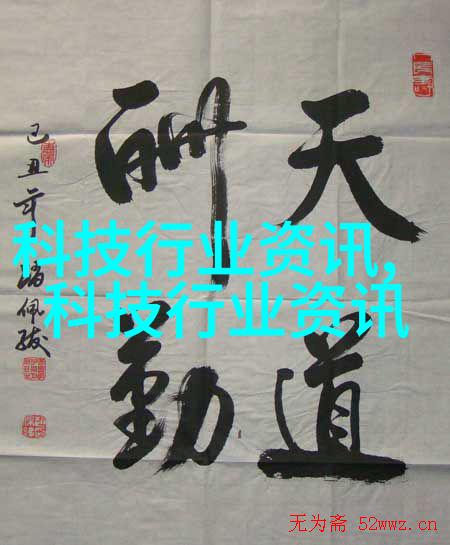 天道
酬勤
己丑年
科技行业资讯,
科技行业资讯
无为斋 52wwz.cn